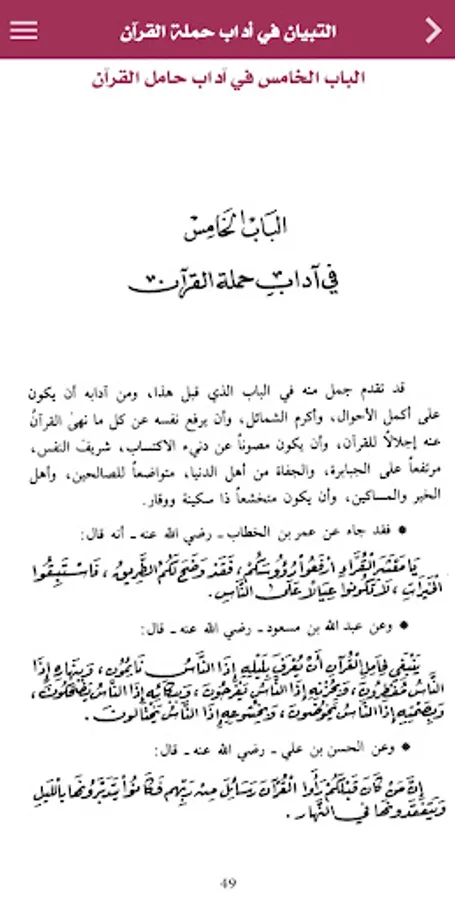 التبيان في أداب حملة القرآن
الباب الخامس في آداب حامل القرآن
الباب الخامس
في آداب حملة القرآن
قد تقدم جمل منه في الباب الذي قبل هذا، ومن آدابه أن يكون
على أكمل الأحوال، وأكرم الشمائل، وأن يرفع نفسه عن كل ما نهىٰ القرآنُ
عنه إجلالًا للقرآن، وأن يكون مصوناً عن دنيء الاكتساب، شريفَ النفس،
مرتفعاً على الجبابرة، والجفاة من أهل الدنيا، متواضعاً للصالحين، وأهل
الخير والمساكين، وأن يكون متخشعاً ذا سكينة ووقار.
• فقد جاء عن عمر بن الخطاب ـ رضي الله عنه ـ أنه قال:
يَا مَعْشَرَ الْقُرَّاءِ ارْفَعُوا رُؤُوسَكُمْ، فَقَدْ وَضَحَ لَكُمُ الطَّرِيقُ، فَاسْتَبِقُوا
الْخَيْرَاتِ، لَا تَكُونُوا عِيَالًا عَلَى النَّاسِ.
• وعن عبد الله بن مسعود ـ رضي الله عنه ـ قال:
يَنْبَغِي لِحَامِلِ الْقُرْآنِ أَنْ يُعْرَفَ بِلَيْلِهِ إِذَا النَّاسُ نَائِمُونَ، وَبِنَهَارِهِ إِذَا
النَّاسُ مُفْطِرُونَ، وَبِحُزْنِهِ إِذَا النَّاسُ يَفْرَحُونَ، وَبِبُكَائِهِ إِذَا النَّاسُ يَضْحَكُونَ،
وَبِصَمْتِهِ إِذَا النَّاسُ يَخُوضُونَ، وَبِخُشُوعِهِ إِذَا النَّاسُ يَخْتَالُونَ.
• وعن الحسن بن علي ـ رضي الله عنه ـ قال:
إِنَّ مَنْ كَانَ قَبْلَكُمْ رَأَوُا الْقُرْآنَ رَسَائِلَ مِنْ رَبِّهِمْ فَكَانُوا يَتَدَبَّرُونَهَا بِاللَّيْلِ
وَيَتَفَقَّدُونَهَا فِي النَّهَارِ.
49